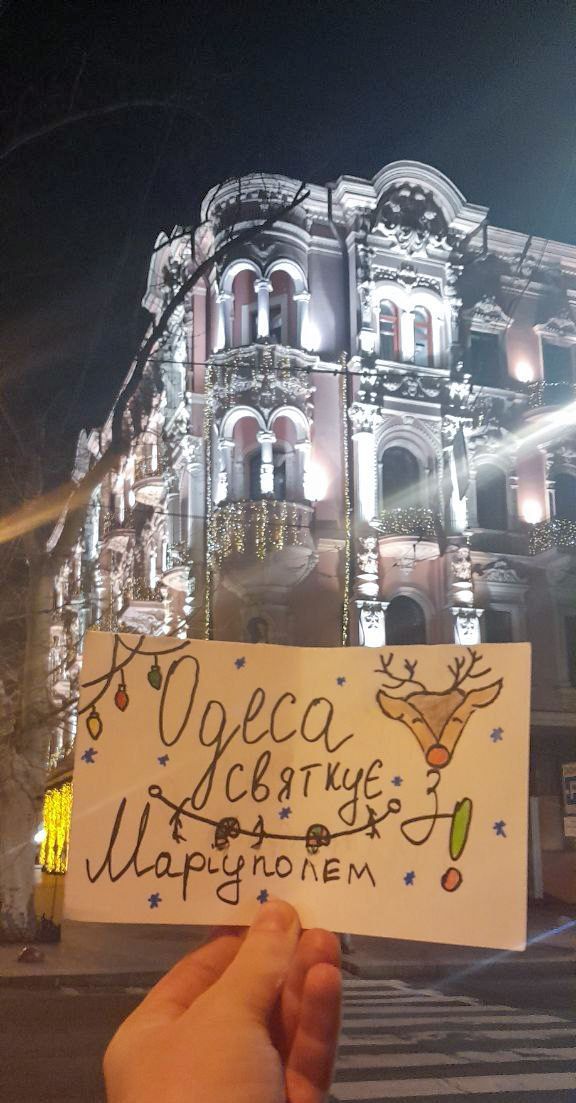 Одеса
святкує
з
Маріуполем!